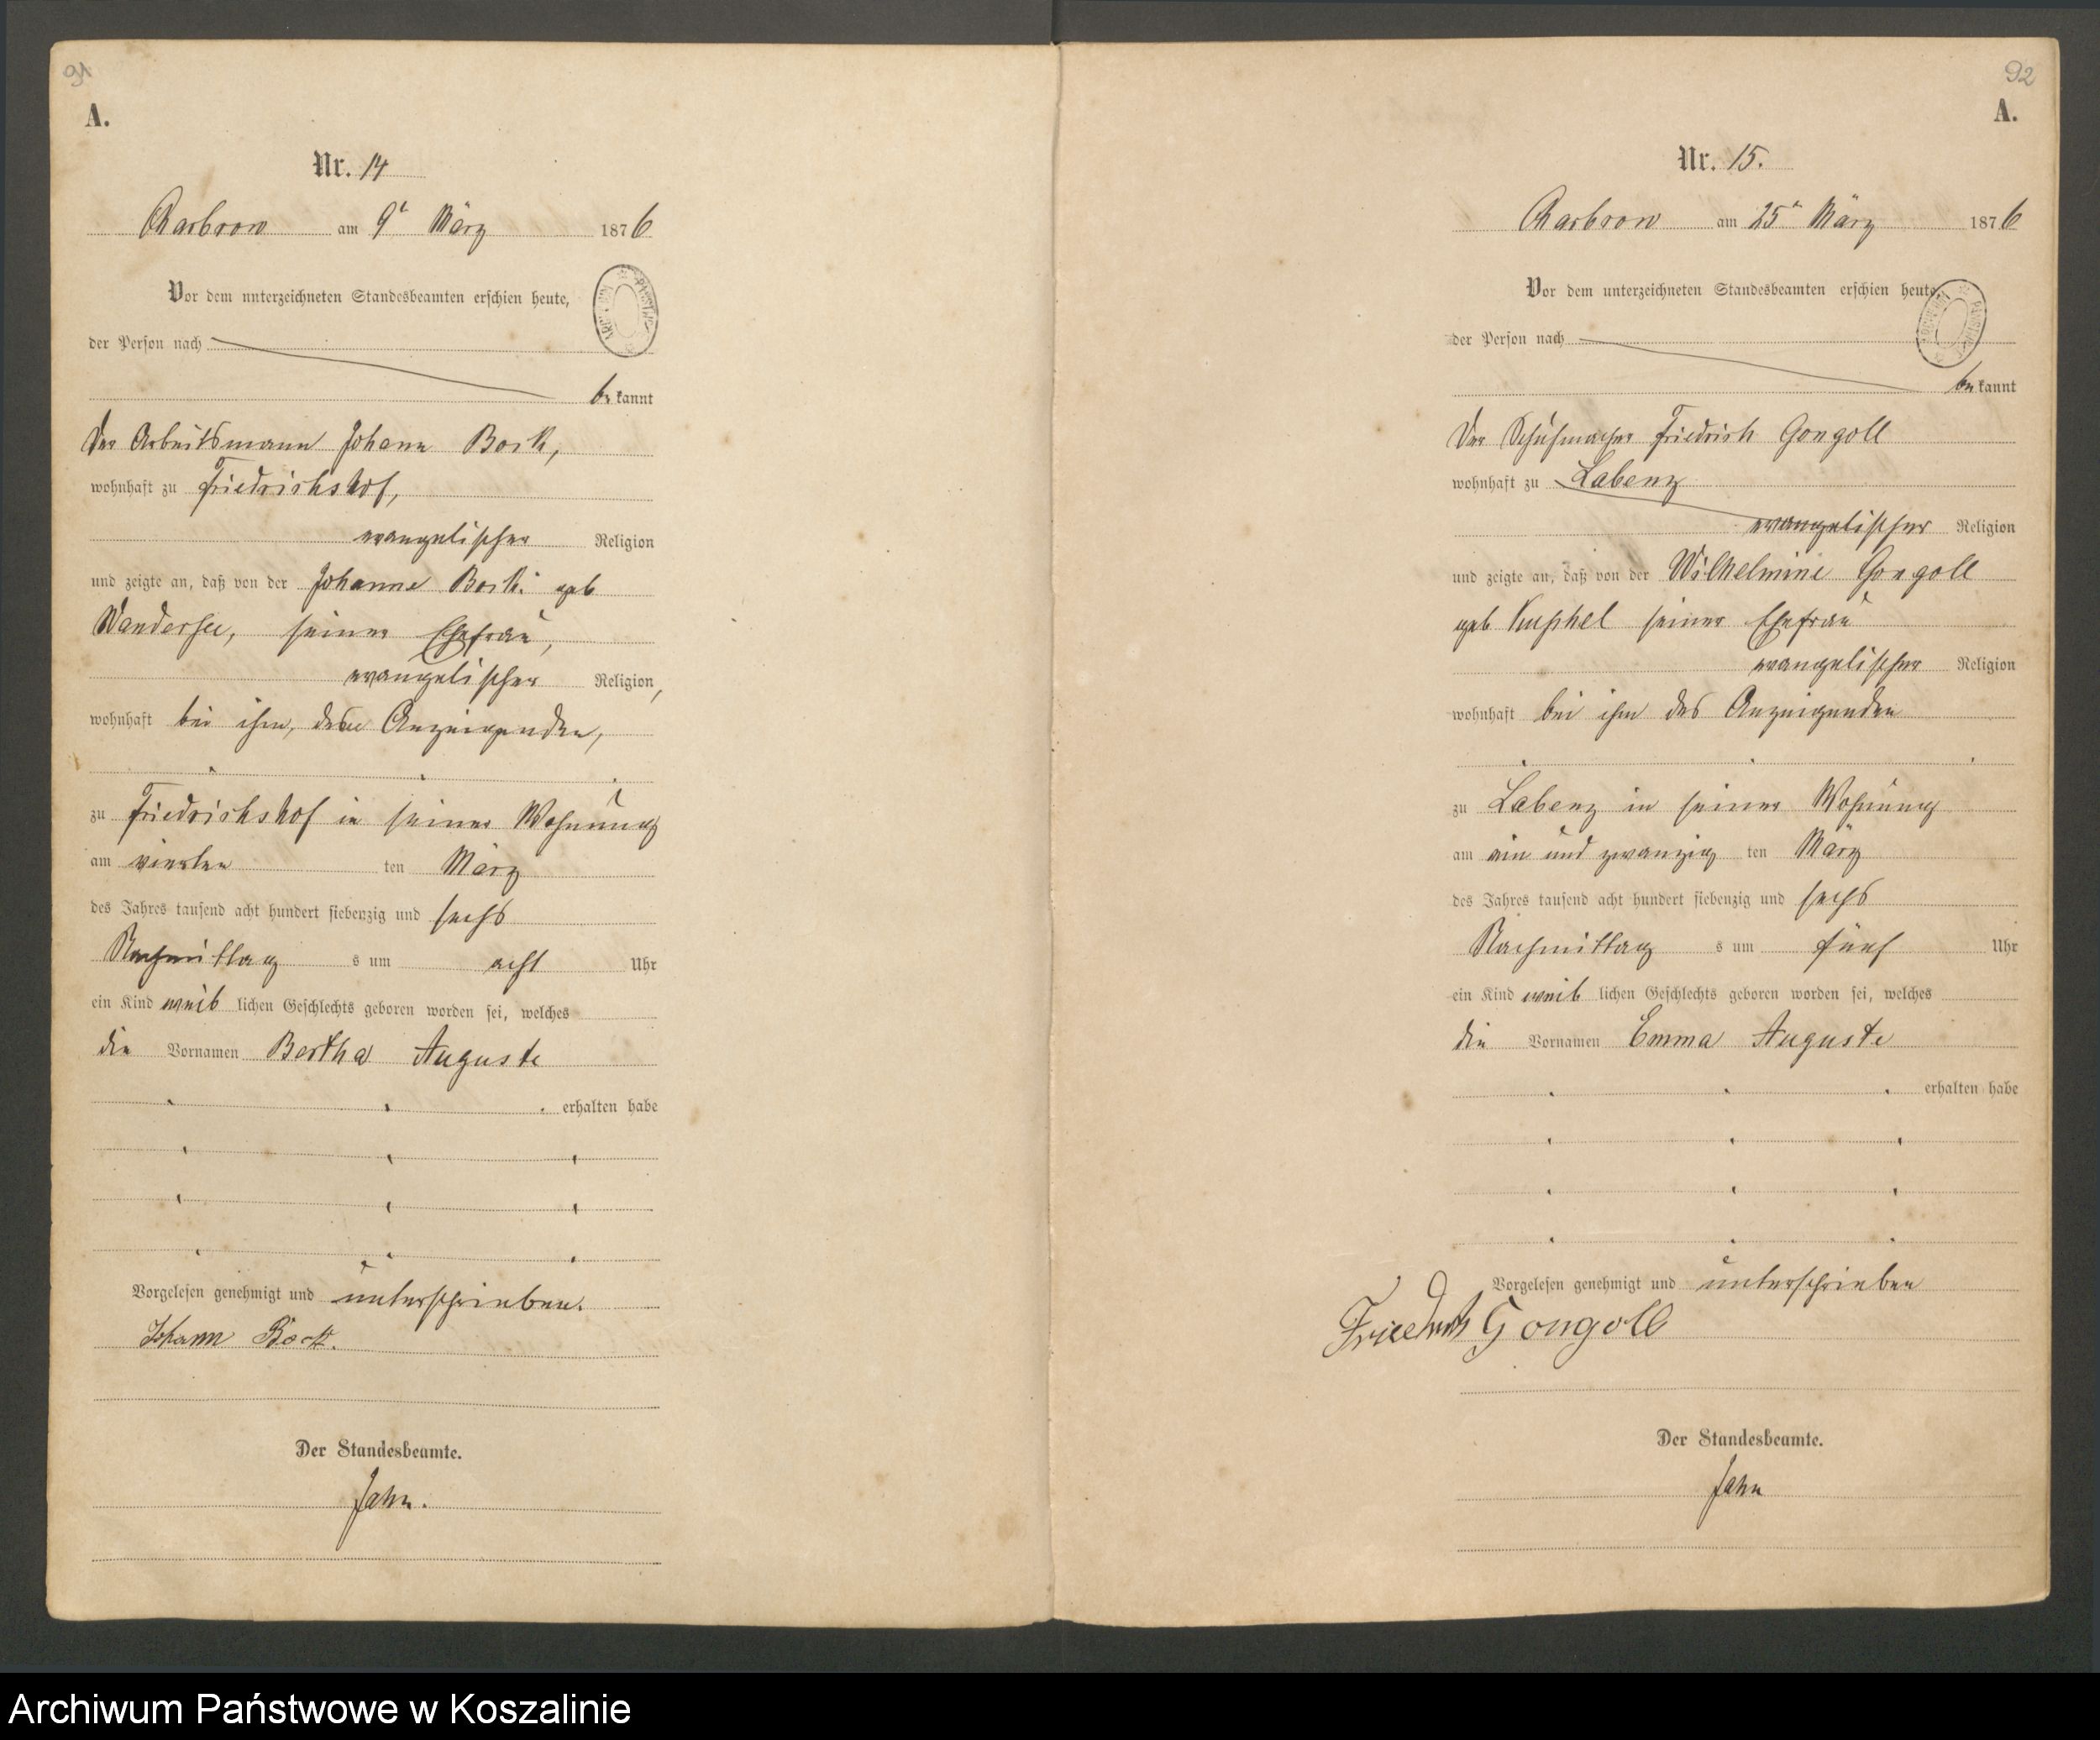 91
A.
Nr. 14
Charbrow am 9t März 1876
Vor dem unterzeichneten Standesbeamten erschien heute,
der Person nach
be kannt
Der Arbeitsmann Johann Bork,
wohnhaft zu Friedrichshof,
evangelischer Religion
und zeigte an, daß von der Johanne Bork geb
Wandersee, seiner Ehefrau,
evangelischer Religion,
wohnhaft bei ihm, dem Anzeigenden,
zu Friedrichshof in seiner Wohnung
am vierten ten März
des Jahres tausend acht hundert siebenzig und sechs
Nachmittag s um acht Uhr
ein Kind weib lichen Geschlechts geboren worden sei, welches
die Vornamen Bertha Auguste
erhalten habe
Vorgelesen genehmigt und unterschrieben.
Johann Bork.
Der Standesbeamte.
Jahn.
92
A.
Nr. 15.
Charbrow am 25t März 1876
Vor dem unterzeichneten Standesbeamten erschien heute,
der Person nach
be kannt
Der Schuhmacher Friedrich Gongoll
wohnhaft zu Labenz
evangelischer Religion
und zeigte an, daß von der Wilhelmine Gongoll
geb seiner Ehefrau
evangelischer Religion
wohnhaft bei ihm des Anzeigenden
zu Labenz in seiner Wohnung
am ein und zwanzig ten März
des Jahres tausend acht hundert siebenzig und sechs
Nachmittag s um fünf Uhr
ein Kind weib lichen Geschlechts geboren worden sei, welches
die Vornamen Emma Auguste
erhalten habe
Vorgelesen genehmigt und unterschrieben
Friedrich Gongoll
Der Standesbeamte.
Jahn
Archiwum Państwowe w Koszalinie